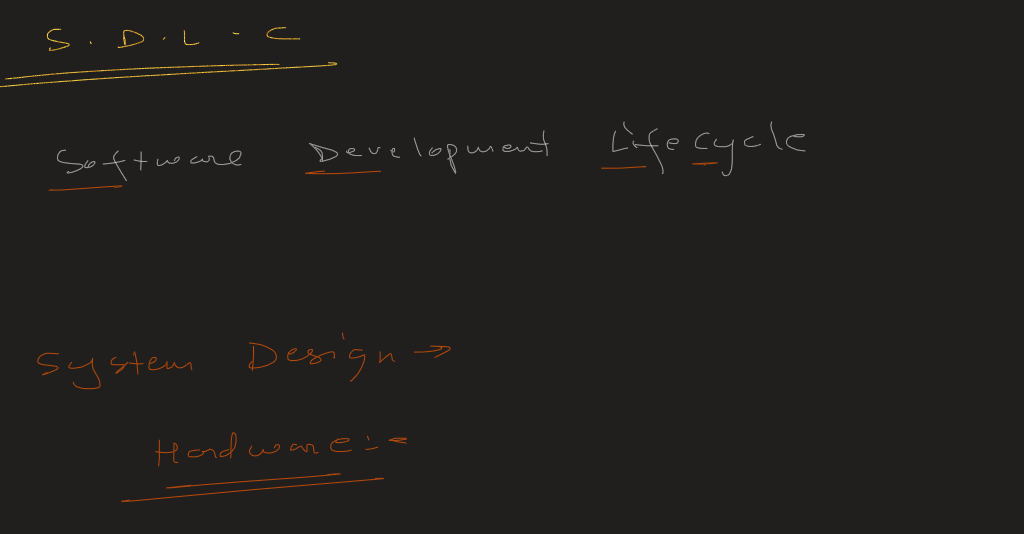 S. D. L - C
Software Development Lifecycle
System Design →
Hardware:-